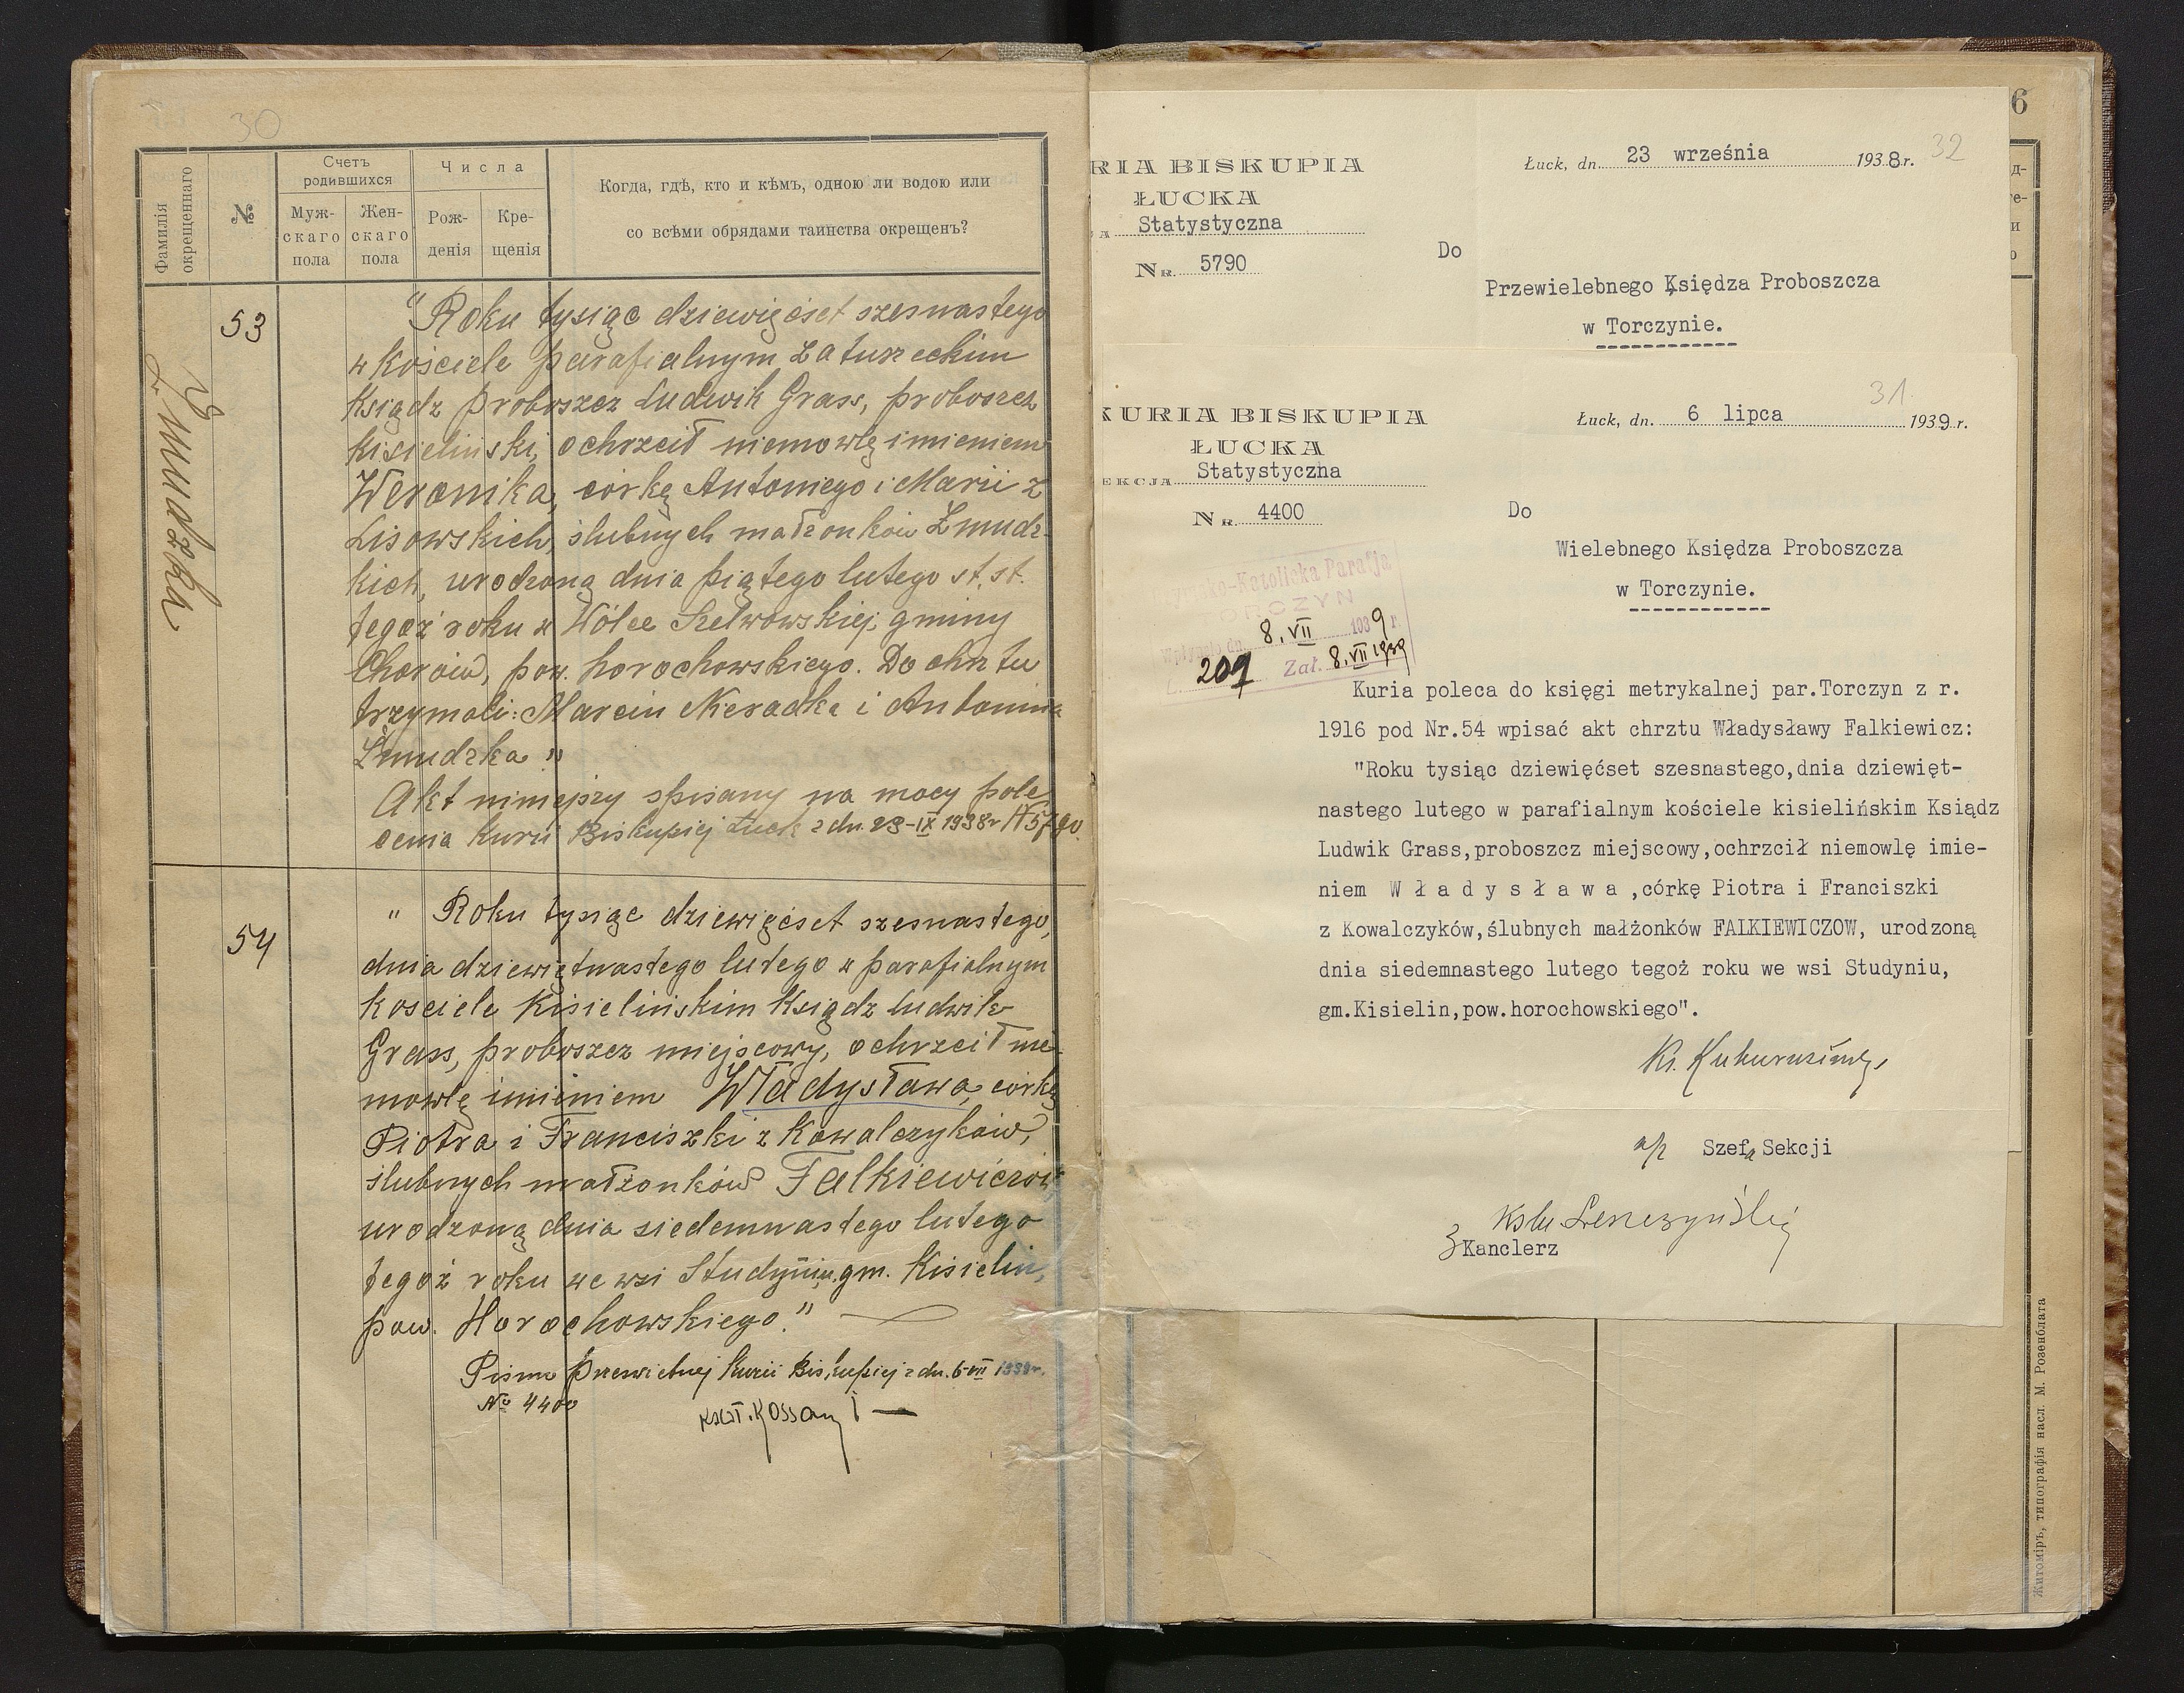 30
Фамилія окрещеннаго
№
Счетъ родившихся
Муж-скаго пола
Жен-скаго пола
Числа
Рож-денія
Кре-щенія
Когда, гдѣ, кто и кѣмъ, одною ли водою или
со всѣми обрядами таинства окрещенъ?
53
Żmudzka
"Roku tysiąc dziewięćset szesnastego
w Kościele parafialnym Zatureckim
Ksiądz proboszcz Ludwik Grass, proboszcz
Kisieliński, ochrzcił niemowlę imieniem
Weronika, córkę Antoniego i Marii z
Lisowskich, ślubnych małżonków Żmudz-
kich, urodzoną dnia piątego lutego st. st.
tegoż roku w Wólce Szelwowskiej, gminy
Chorów, pow. horochowskiego. Do chrztu
trzymali: Marcin Nieradka i Antonina
Żmudzka"
Akt niniejszy spisany na mocy pole
cenia Kurii Biskupiej Łuck z dn. 23-IX 1938r N5790.
54
" Roku tysiąc dziewięćset szesnastego,
dnia dziewiętnastego lutego w parafialnym
kościele Kisielińskim Ksiądz Ludwik
Grass, proboszcz miejscowy, ochrzcił nie
mowlę imieniem Władysława, córkę
Piotra i Franciszki z Kowalczyków,
ślubnych małżonków Falkiewiczów
urodzoną dnia siedemnastego lutego
tegoż roku we wsi Studyniu, gm. Kisielin,
pow. Horochowskiego."
Pismo Przewietnej Kurii Biskupiej z dn. 6-VII 1939r.
№ 4400
RIA BISKUPIA
ŁUCKA
Statystyczna
Nr. 5790
Łuck, dn. 23 września 1938 r.
32
Do
Przewielebnego Księdza Proboszcza
w Torczynie.
KURIA BISKUPIA
ŁUCKA
EKCJA Statystyczna
Nr. 4400
31
Łuck, dn. 6 lipca 1939 r.
Do
Wielebnego Księdza Proboszcza
w Torczynie.
-Katolicka Parafja
TORCZYN
Wpłynęło dn. 8.VII 1939 r.
209 Zał. 8.VII 1939
Kuria poleca do księgi metrykalnej par.Torczyn z r.
1916 pod Nr.54 wpisać akt chrztu Władysławy Falkiewicz:
"Roku tysiąc dziewięćset szesnastego,dnia dziewięt-
nastego lutego w parafialnym kościele kisielińskim Ksiądz
Ludwik Grass,proboszcz miejscowy,ochrzcił niemowlę imie-
niem W ł a d y s ł a w a ,córkę Piotra i Franciszki
z Kowalczyków,ślubnych małżonków FALKIEWICZOW, urodzoną
dnia siedemnastego lutego tegoż roku we wsi Studyniu,
gm.Kisielin,pow.horochowskiego".
a/z Szefa Sekcji
Kanclerz
6
Житоміръ, типографія насл. М. Розенблата